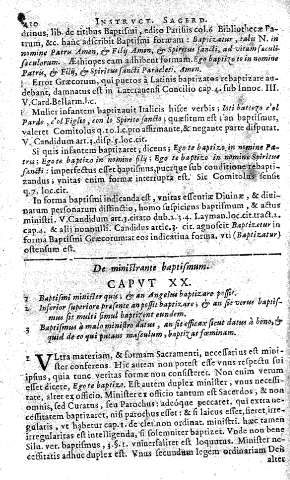 210 INSTRUCT. SACERD.
drinus, lib. de titibus Baptismi, edito Parisiis col. 6. Bibliothecæ Pa-
trum, &c. hanc adscribit Baptismi formam: Baptizatur, talis N. in
nomine Patris Amen, & Filij Amen, & Spiritus sancti, ad vitam sæculi
sæculorum. Æthiopes eam adhibent formam. Ego baptizo te in nomine
Patris, & Filij, & Spiritus sancti Paracleti. Amen.
¶ Error Græcorum, qui pueros à Latinis baptizatos rebaptizare au-
debant, damnatus est in Lateranensi Concilio cap. 4. sub Innoc. III.
V. Card. Bellarm. l. c.
¶ Mulier infantem baptizauit Italicis hisce verbis; Isti battezo d'el
Pardo, e d'el Figlio, con lo Spirito sancto; quæsitum est: an baptismus,
valeret Comitolus q. 10. l. c. pro affirmante, & negante parte disputat.
V. Candidum art. 1. disp. 5. loc. cit.
Si quis infantem baptizaret; dicens; Ego te baptizo in nomine Pa-
tris; Ego te baptizo in nomine filij; Ego te baptizo in nomine Spiritus
sancti: imperfectus esset baptismus, puerque sub conditione rebapti-
zandus; vnitas enim formæ interrupta est. Sic Comitolus sensit
q. 7. loc. cit.
In forma baptismi indicanda est, vnitas essentiæ Diuinæ, & diui-
narum personarum distinctio, homo suscipiens baptismum, & actus
ministri. V. Candidum art. 3. citato dub. 1. 3. 4. Layman. loc. cit. tract. 1.
cap. 4. & alij nonnulli. Candidus art. 3. cit. agnoscit Baptizetur in
forma Baptismi Græcorum: at eos indicatiua forma, vti (Baptizatur)
ostensum est.
De ministrante baptismum.
CAPVT XX.
1 Baptismi minister quis, & an Angelus baptizare possit.
2 Inferior superiore præsente an possit baptizare, & an sit verus baptis-
mus si multi simul baptizent eundem.
3 Baptismus à malo ministro datus, an sit efficax sicut datus à bono, &
quid de eo qui putans masculum, baptizat fœminam.
1 VLtra materiam, & formam Sacramenti, necessarius est mi-
ster conferens. Hic autem non potest esse vnus respectu sui
ipsius, quia tunc veritas formæ non consisteret. Non enim verum
esset dicere, Ego te baptizo. Est autem duplex minister, vnus necessi-
tatis, alter ex officio. Minister ex officio tantum est Sacerdos, & non
omnis, sed Curatus, seu Parochus: adeoque peccaret, qui extra ne-
cessitatem baptizaret, nisi parochus esset: & si laicus esset, fieret irre-
gularis, vt habetur cap. 1. de cler. non ordinat. ministr. hæc tamen
irregularitas est intelligenda, si solemniter baptizet. Vnde non bene
Silu. ver. baptismus, 3. §. 1. vniuersaliter est loquutus. Minister ne-
cessitatis adhuc duplex est. Vnus secundum legem ordinariam Dei;
alter